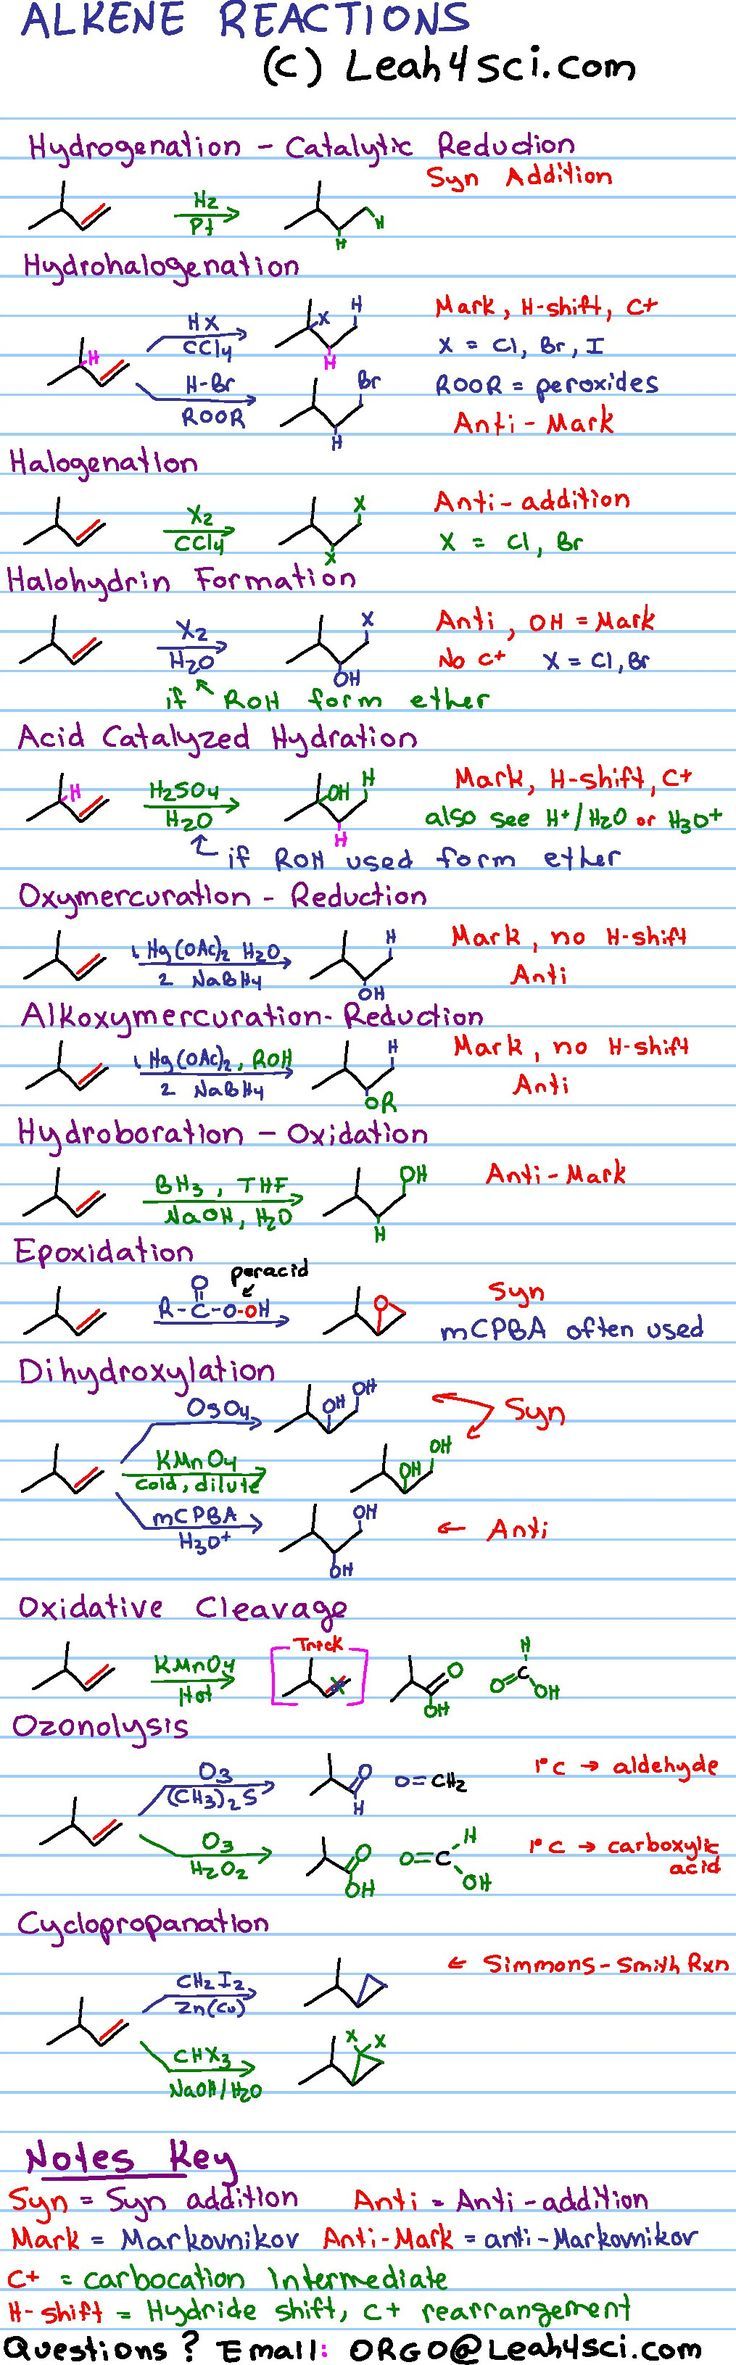 ALKENE REACTIONS
(C) Leah4sci.com
Hydrogenation - Catalytic Reduction
Syn Addition
H2
Pt
H
H
Hydrohalogenation
H
HX
CCl4
X
H
H
Mark, H-shift, C+
X = Cl, Br, I
H-Br
ROOR
Br
H
ROOR = peroxides
Anti-Mark
Halogenation
X2
CCl4
X
X
Anti-addition
X = Cl, Br
Halohydrin Formation
X2
H2O
X
OH
Anti, OH = Mark
No C+ X = Cl, Br
if ROH form ether
Acid Catalyzed Hydration
H
H2SO4
H2O
OH
H
H
Mark, H-shift, C+
also see H+/H2O or H3O+
if ROH used form ether
Oxymercuration - Reduction
1 Hg(OAc)2 H2O
2 NaBH4
H
OH
Mark, no H-shift
Anti
Alkoxymercuration-Reduction
1 Hg(OAc)2, ROH
2 NaBH4
H
OR
Mark, no H-shift
Anti
Hydroboration - Oxidation
BH3, THF
NaOH, H2O
OH
H
Anti-Mark
Epoxidation
O
R-C-O-OH
peracid
O
Syn
mCPBA often used
Dihydroxylation
OsO4
OH
OH
Syn
KMnO4
cold, dilute
OH
OH
mCPBA
H3O+
OH
OH
Anti
Oxidative Cleavage
KMnO4
Hot
Trick
O
OH
H
O=C
OH
Ozonolysis
O3
(CH3)2S
O
H
O=CH2
1°C → aldehyde
O3
H2O2
O
OH
O=C
H
OH
1°C → carboxylic
acid
Cyclopropanation
CH2I2
Zn(Cu)
← Simmons-Smith Rxn
CHX3
NaOH/H2O
X X
Notes Key
Syn = Syn addition Anti = Anti-addition
Mark = Markovnikov Anti-Mark = anti-Markovnikov
C+ = carbocation Intermediate
H-shift = Hydride shift, C+ rearrangement
Questions? Email: ORGO@Leah4sci.com